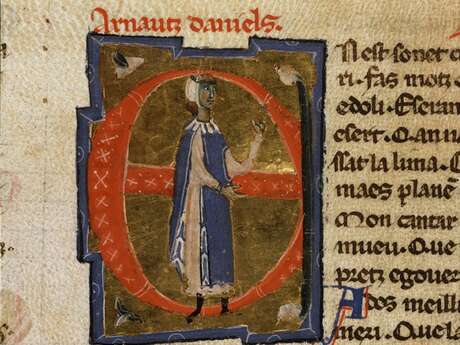 Arnautz daniels.
En est sonet c
ri·fas motz c
edoli·Eseran
esert·Oan na
ssat la luna·C
maes planē
Mon cantar
mueu·Que
pretz egouer
Ados meill
meri·Que la